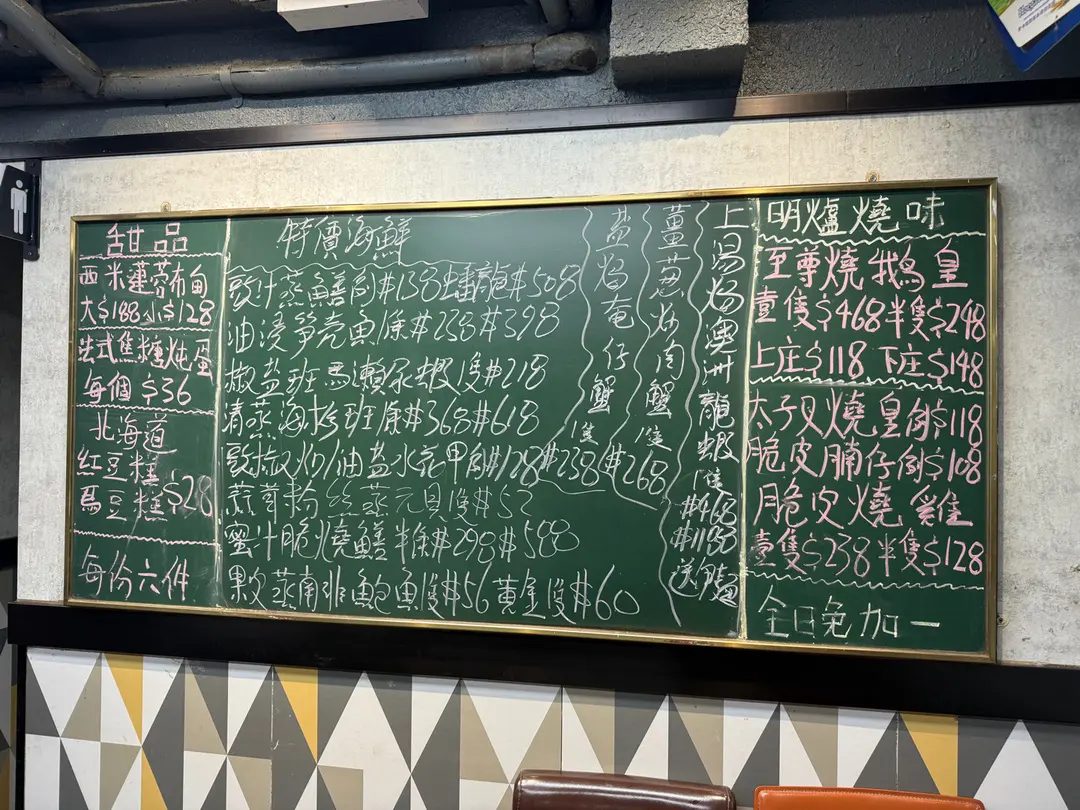 甜品
西米蓮蓉布甸
大$188 小$128
法式焦糖炖蛋
每個 $36
北海道
紅豆糕
馬豆糕 $28
每份六件
特價海鮮
豉汁蒸鱔 例#138 蟠龍#508
油浸笋壳魚 條#238 #398
椒盐班馬瀨尿蝦 1隻#218
清蒸海 班 條#368 #618
豉椒炒/油盐水花甲 例#128
蒜茸粉丝蒸元貝 隻#52
蜜汁脆燒鱔 半條#298 #588
果皮蒸南非鮑魚 隻#56 黄金 隻#60
盐焗奄仔蟹 1隻 #238
薑葱炒肉蟹 1隻 #268
上湯焗澳州龍蝦 1隻 #468 #1188
明爐燒味
至尊燒鵝皇
壹隻$468 半隻$248
上庄$118 下庄$148
太子叉燒皇 例$118
脆皮腩仔 例$108
脆皮燒雞
壹隻$238 半隻$128
全日免加一